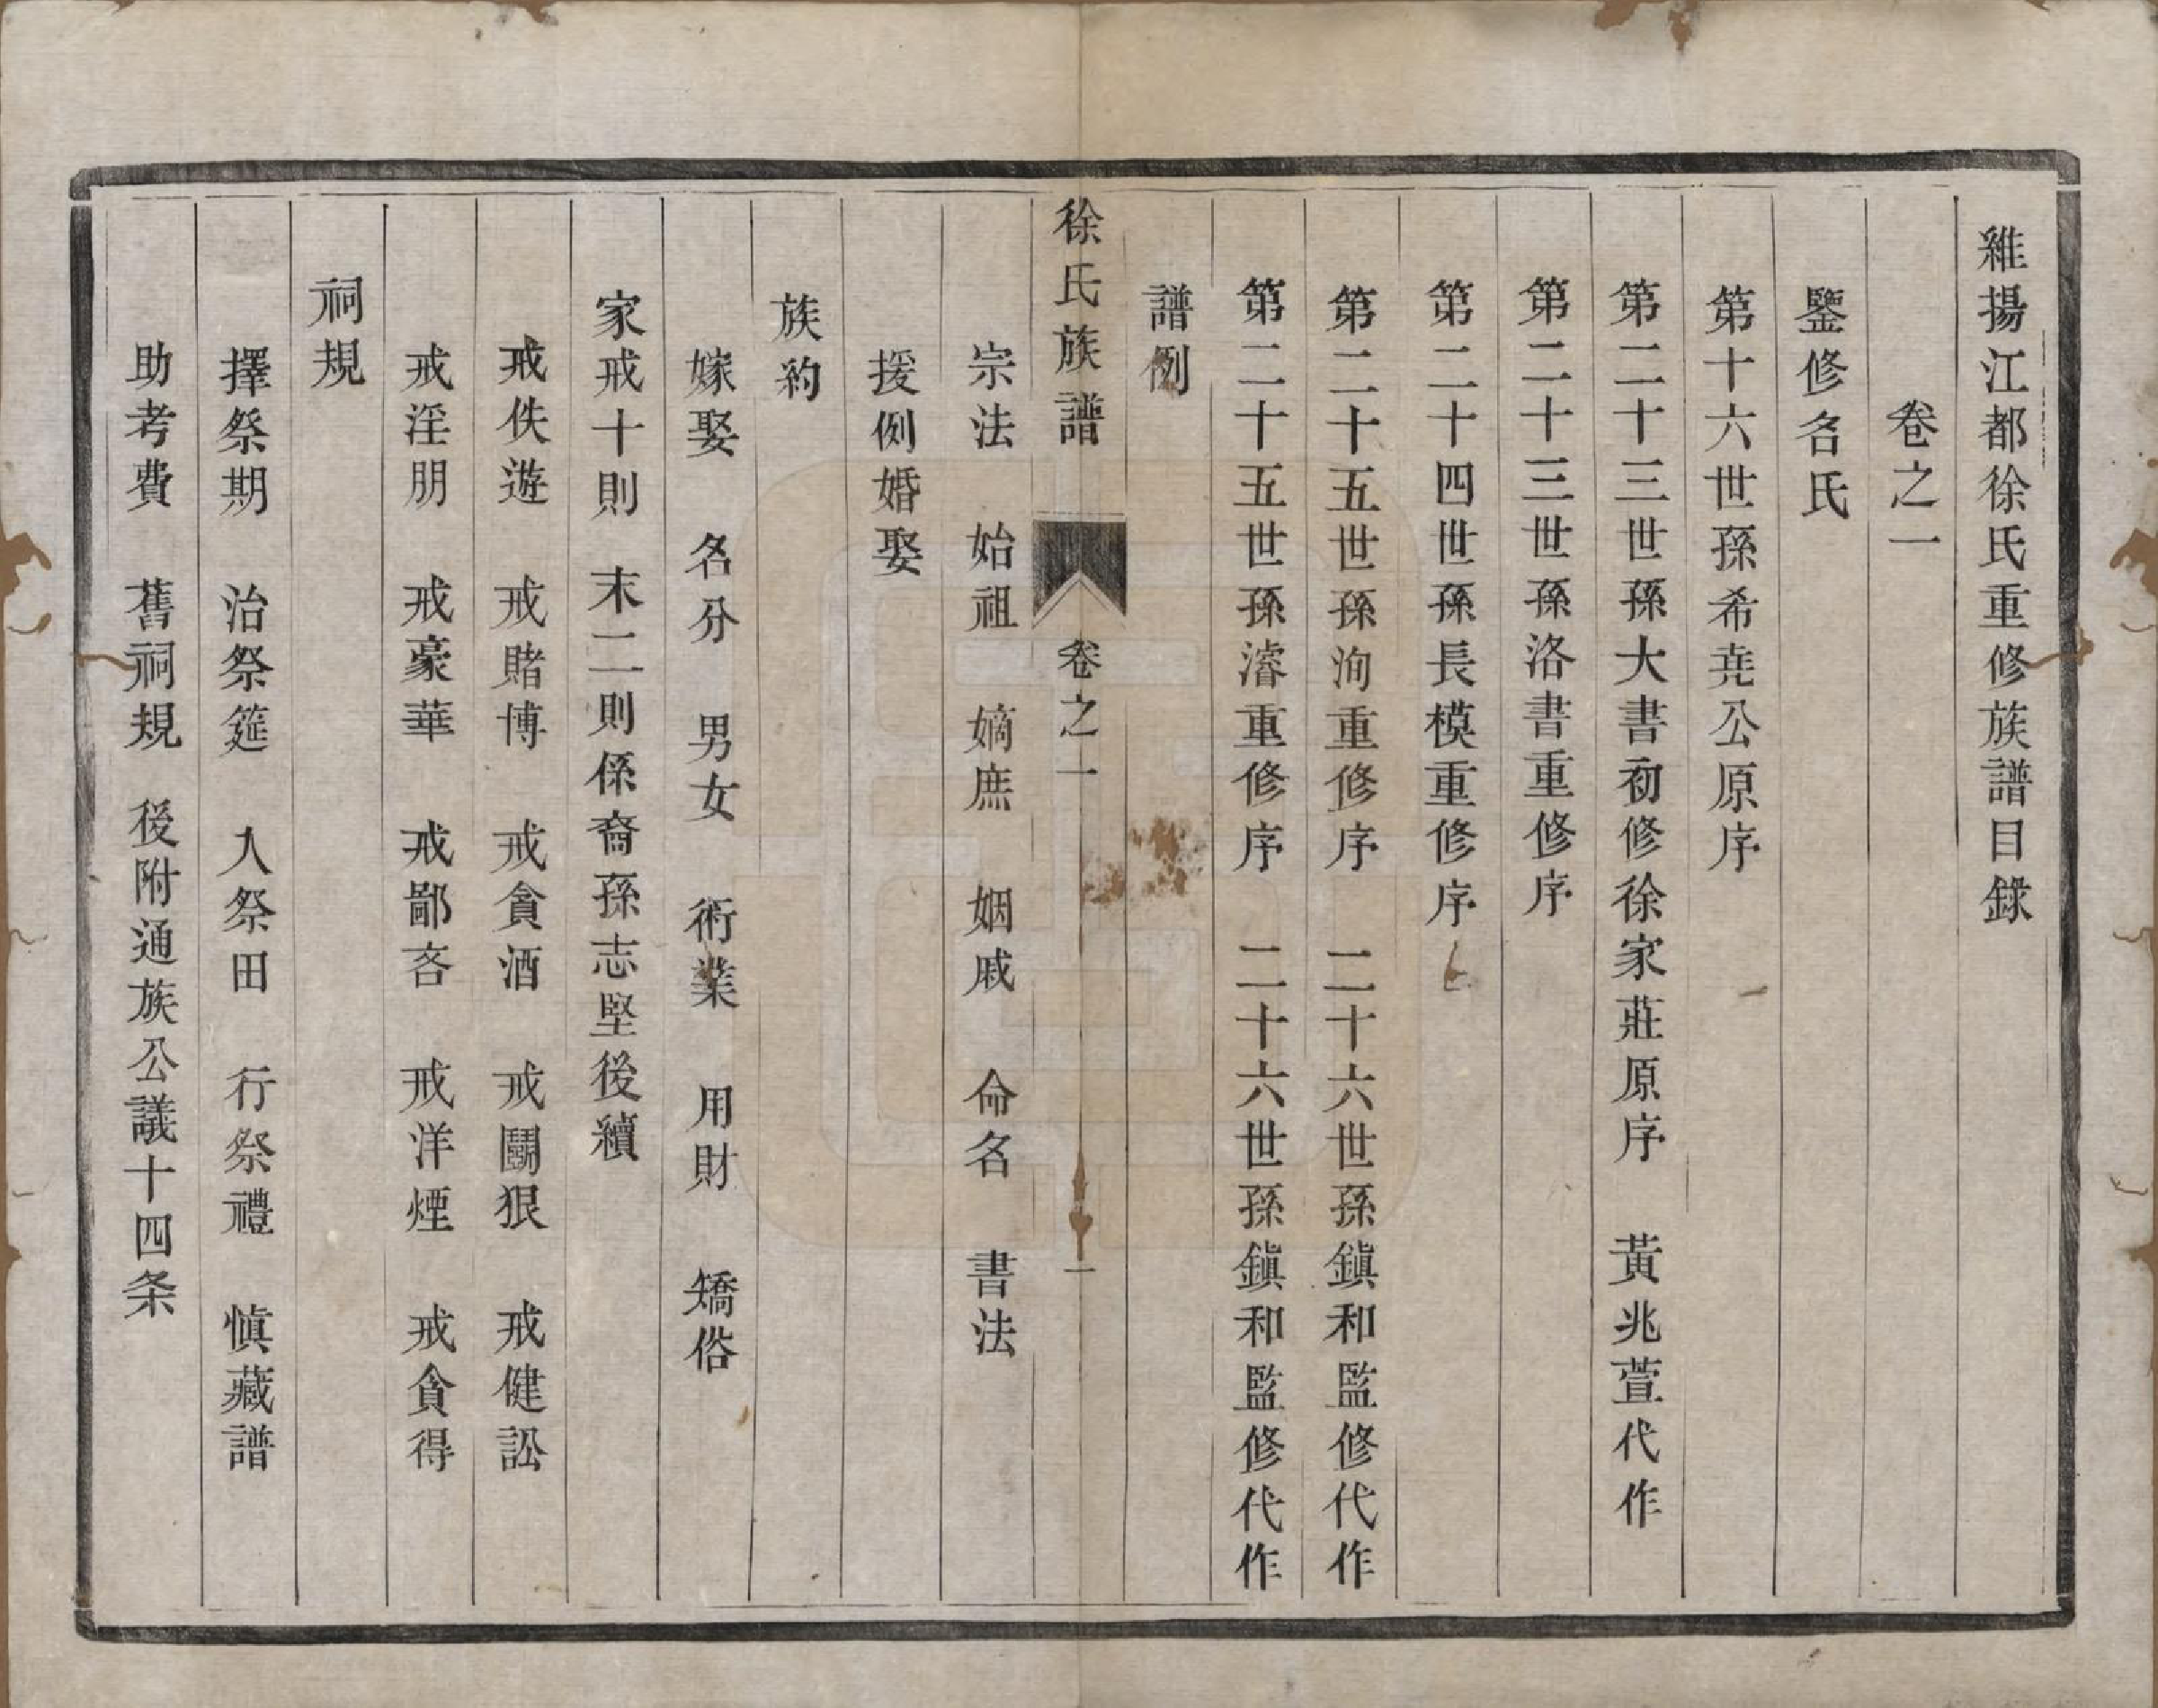 維揚江都徐氏重修族譜目錄
卷之一
鑒修名氏
第十六世孫希堯公原序
第二十三世孫大書初修徐家莊原序　黃兆萱代作
第二十三世孫洛書重修序
第二十四世孫長模重修序
第二十五世孫洵重修序　二十六世孫鎮和監修代作
第二十五世孫濬重修序　二十六世孫鎮和監修代作
譜例
徐氏族譜　卷之一　一
宗法　始祖　嫡庶　姻戚　命名　書法
援例婚娶
族約
嫁娶　名分　男女　術業　用財　矯俗
家戒十則　末二則係裔孫志堅後續
戒佚遊　戒賭博　戒貪酒　戒鬭狠　戒健訟
戒淫朋　戒豪華　戒鄙吝　戒洋煙　戒貪得
祠規
擇祭期　治祭筵　入祭田　行祭禮　慎藏譜
助考費　舊祠規　後附通族公議十四条